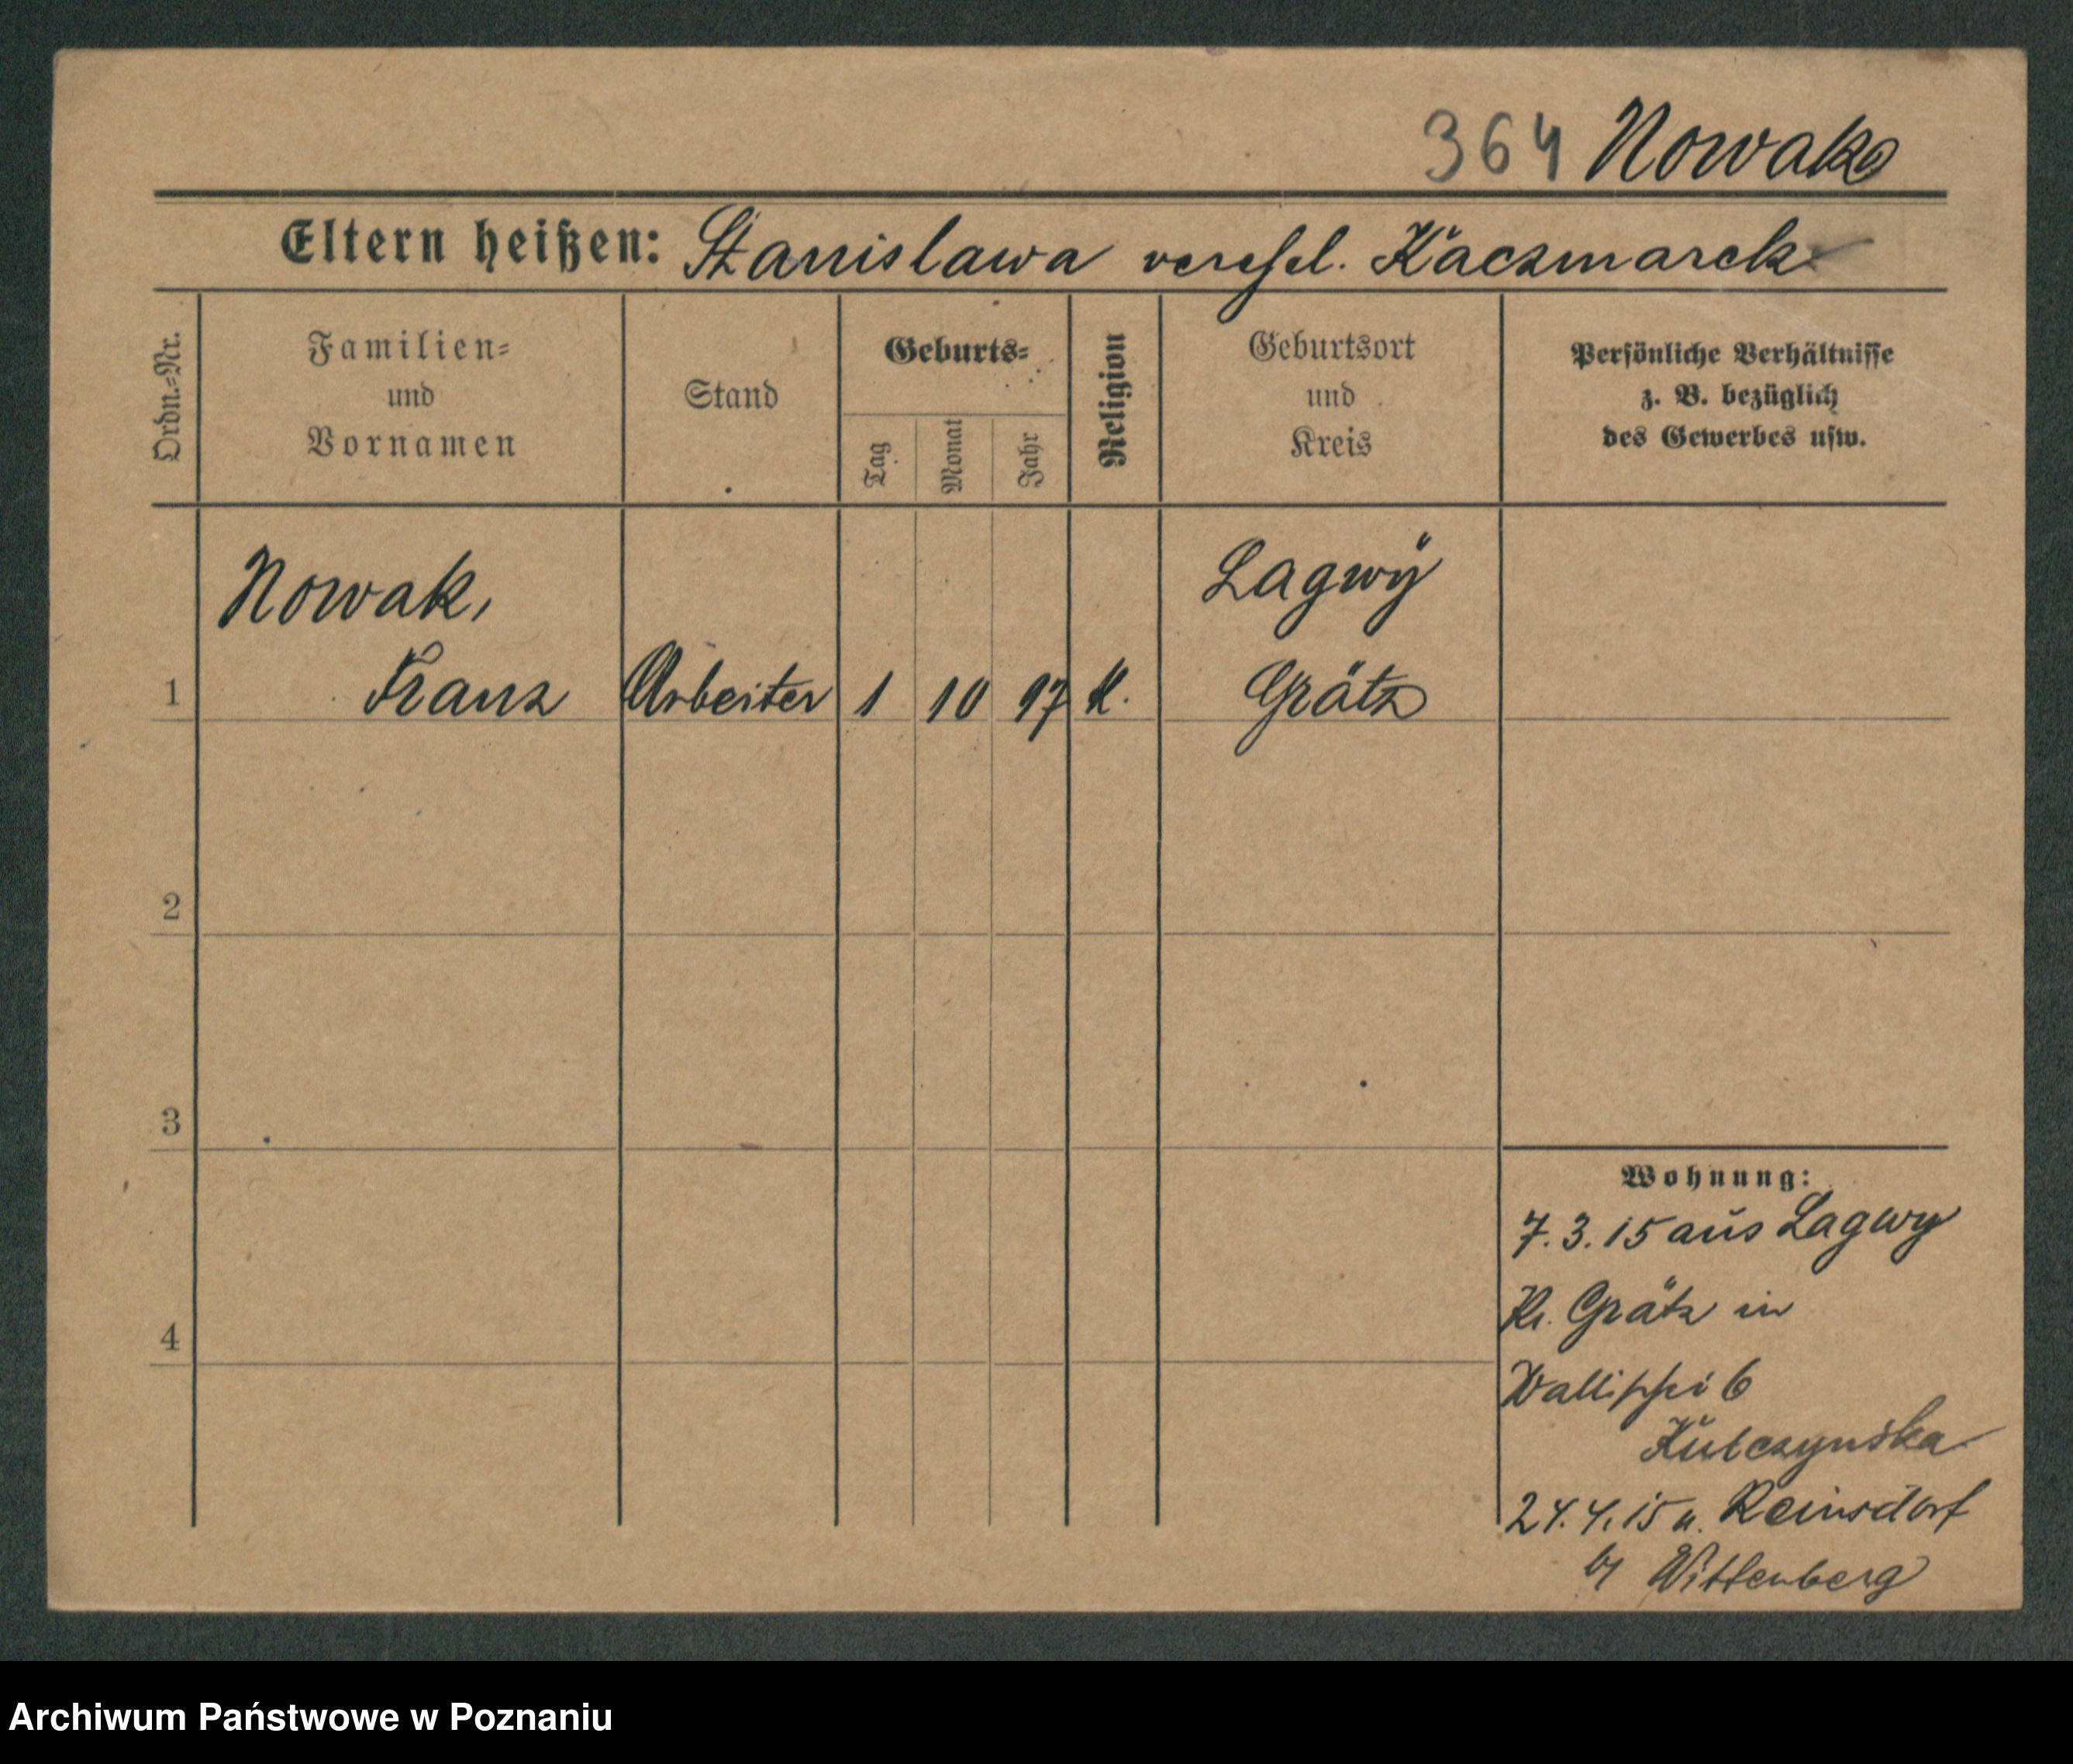 364 Nowak
Eltern heißen: Stanislawa verehel. Kaczmarek
Ordn.-Nr.
Familien-
und
Vornamen
Stand
Geburts-
Tag
Monat
Jahr
Religion
Geburtsort
und
Kreis
Persönliche Verhältnisse
z. B. bezüglich
des Gewerbes usw.
Nowak,
Lagwy
1 Franz Arbeiter 1 10 97 K. Grätz
2
3
4
Wohnung:
7.3.15 aus Lagwy
Kr. Grätz in
Wallischei 6
24.4.15 n. Reinsdorf
b/ Wittenberg
Archiwum Państwowe w Poznaniu